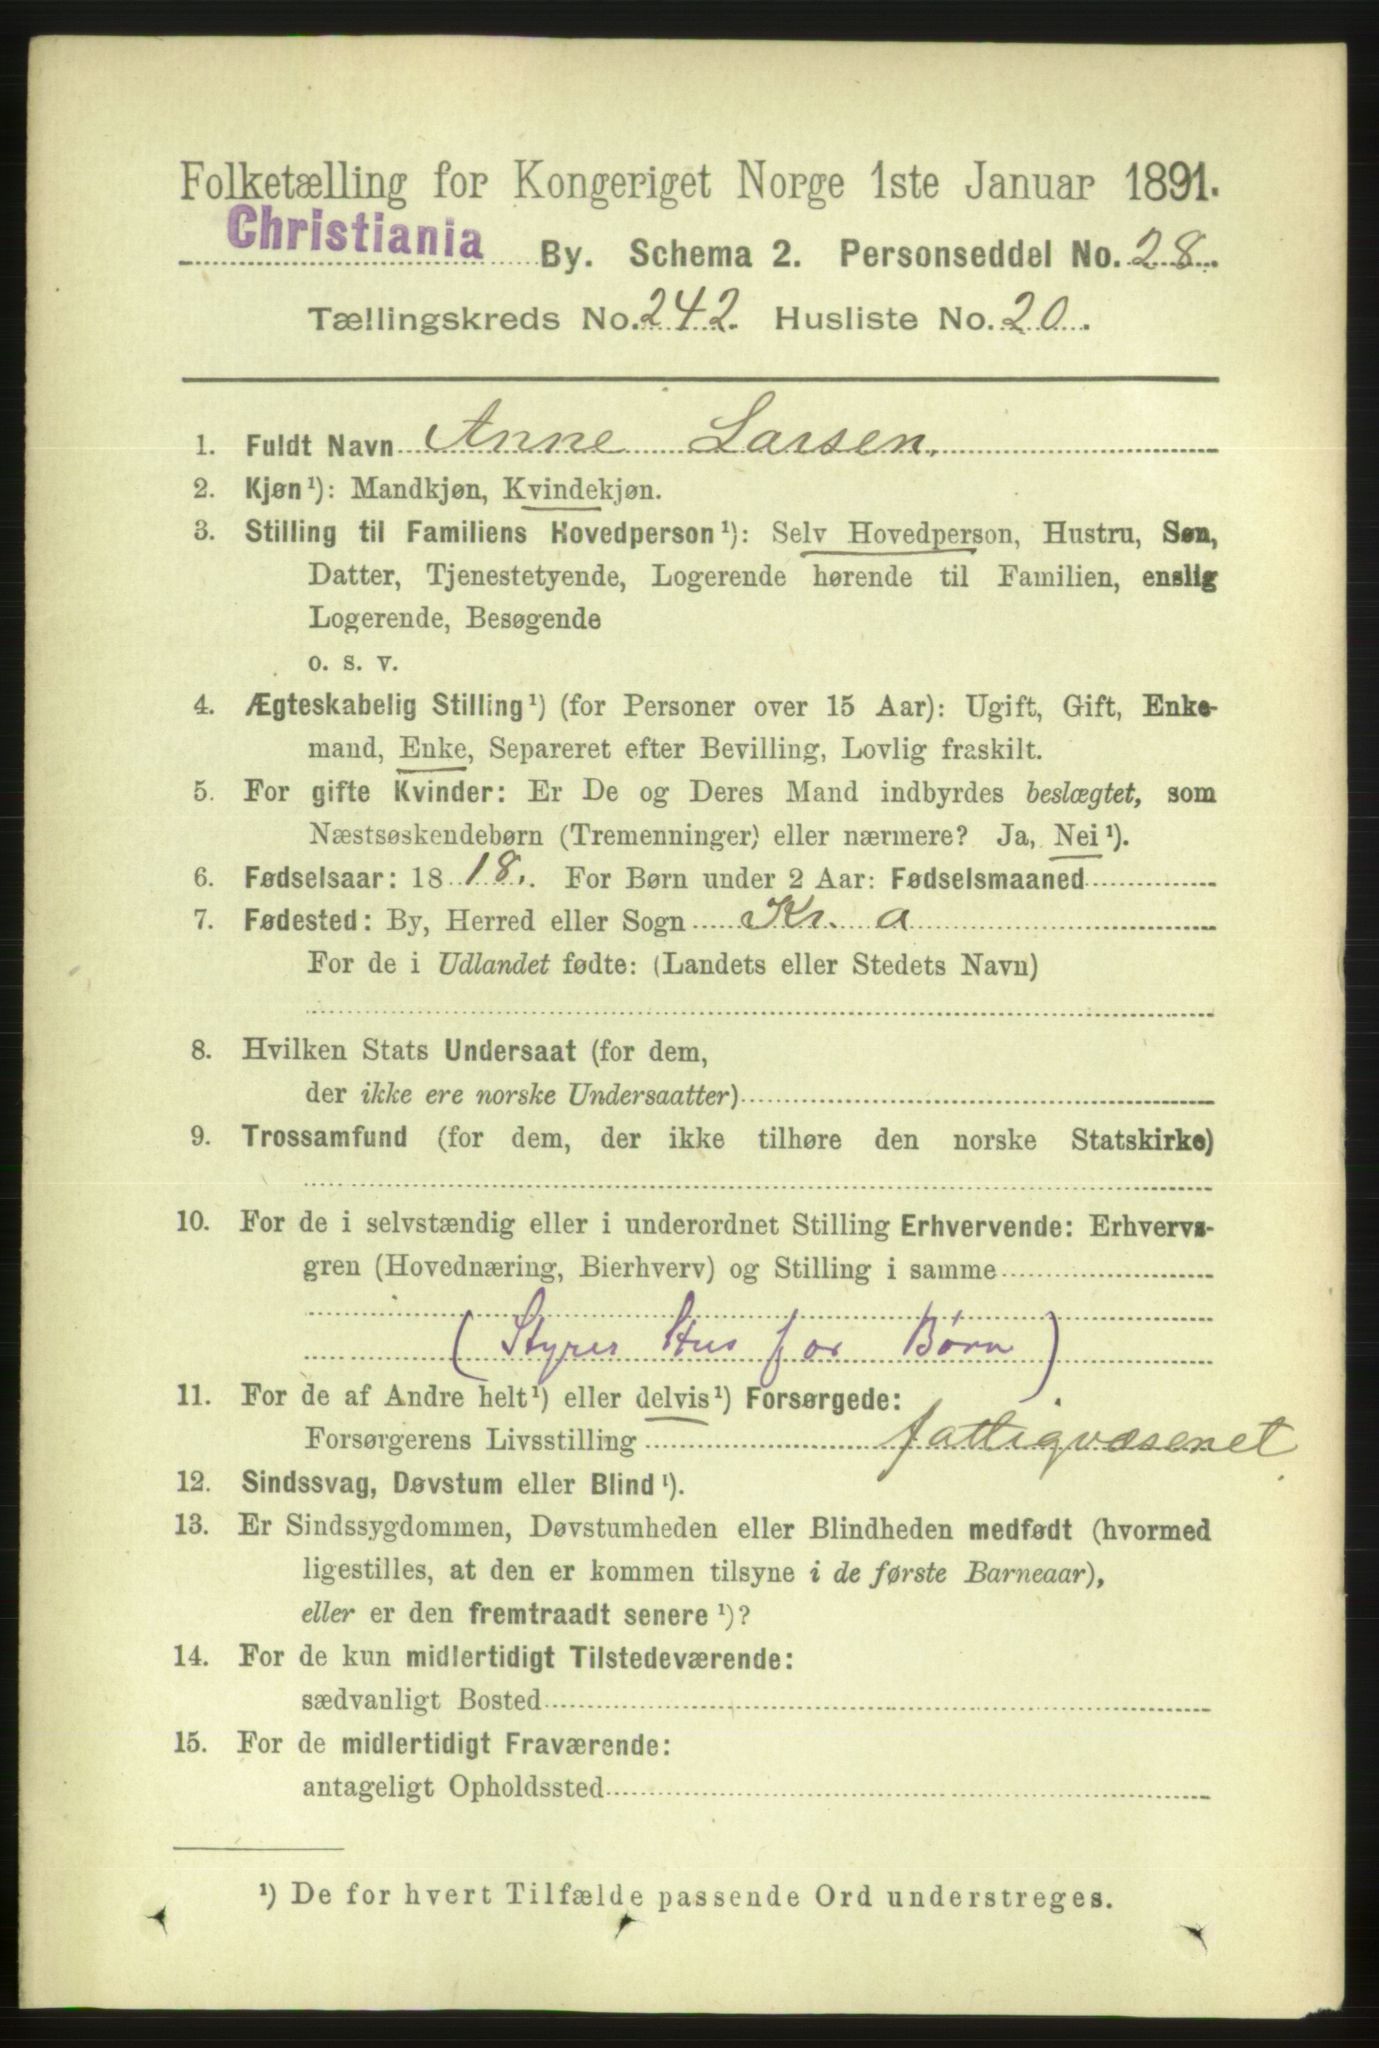 Folketælling for Kongeriget Norge 1ste Januar 1891.
Christiania By. Schema 2. Personseddel No. 28.
Tællingskreds No. 242. Husliste No. 20.
1. Fuldt Navn Anne Larsen.
2. Kjøn¹): Mandkjøn, Kvindekjøn.
3. Stilling til Familiens Hovedperson¹): Selv Hovedperson, Hustru, Søn,
Datter, Tjenestetyende, Logerende hørende til Familien, enslig
Logerende, Besøgende
o. s. v.
4. Ægteskabelig Stilling¹) (for Personer over 15 Aar): Ugift, Gift, Enke-
mand, Enke, Separeret efter Bevilling, Lovlig fraskilt.
5. For gifte Kvinder: Er De og Deres Mand indbyrdes beslægtet, som
Næstsøskendebørn (Tremenninger) eller nærmere? Ja, Nei¹).
6. Fødselsaar: 1818. For Børn under 2 Aar: Fødselsmaaned
7. Fødested: By, Herred eller Sogn Kr. a
For de i Udlandet fødte: (Landets eller Stedets Navn)
8. Hvilken Stats Undersaat (for dem,
der ikke ere norske Undersaatter)
9. Trossamfund (for dem, der ikke tilhøre den norske Statskirke)
10. For de i selvstændig eller i underordnet Stilling Erhvervende: Erhvervs-
gren (Hovednæring, Bierhverv) og Stilling i samme
(Styrer Hus for Børn)
11. For de af Andre helt¹) eller delvis¹) Forsørgede:
Forsørgerens Livsstilling fattigvæsenet
12. Sindssvag, Døvstum eller Blind¹).
13. Er Sindssygdommen, Døvstumheden eller Blindheden medfødt (hvormed
ligestilles, at den er kommen tilsyne i de første Barneaar),
eller er den fremtraadt senere¹)?
14. For de kun midlertidigt Tilstedeværende:
sædvanligt Bosted
15. For de midlertidigt Fraværende:
antageligt Opholdssted
¹) De for hvert Tilfælde passende Ord understreges.